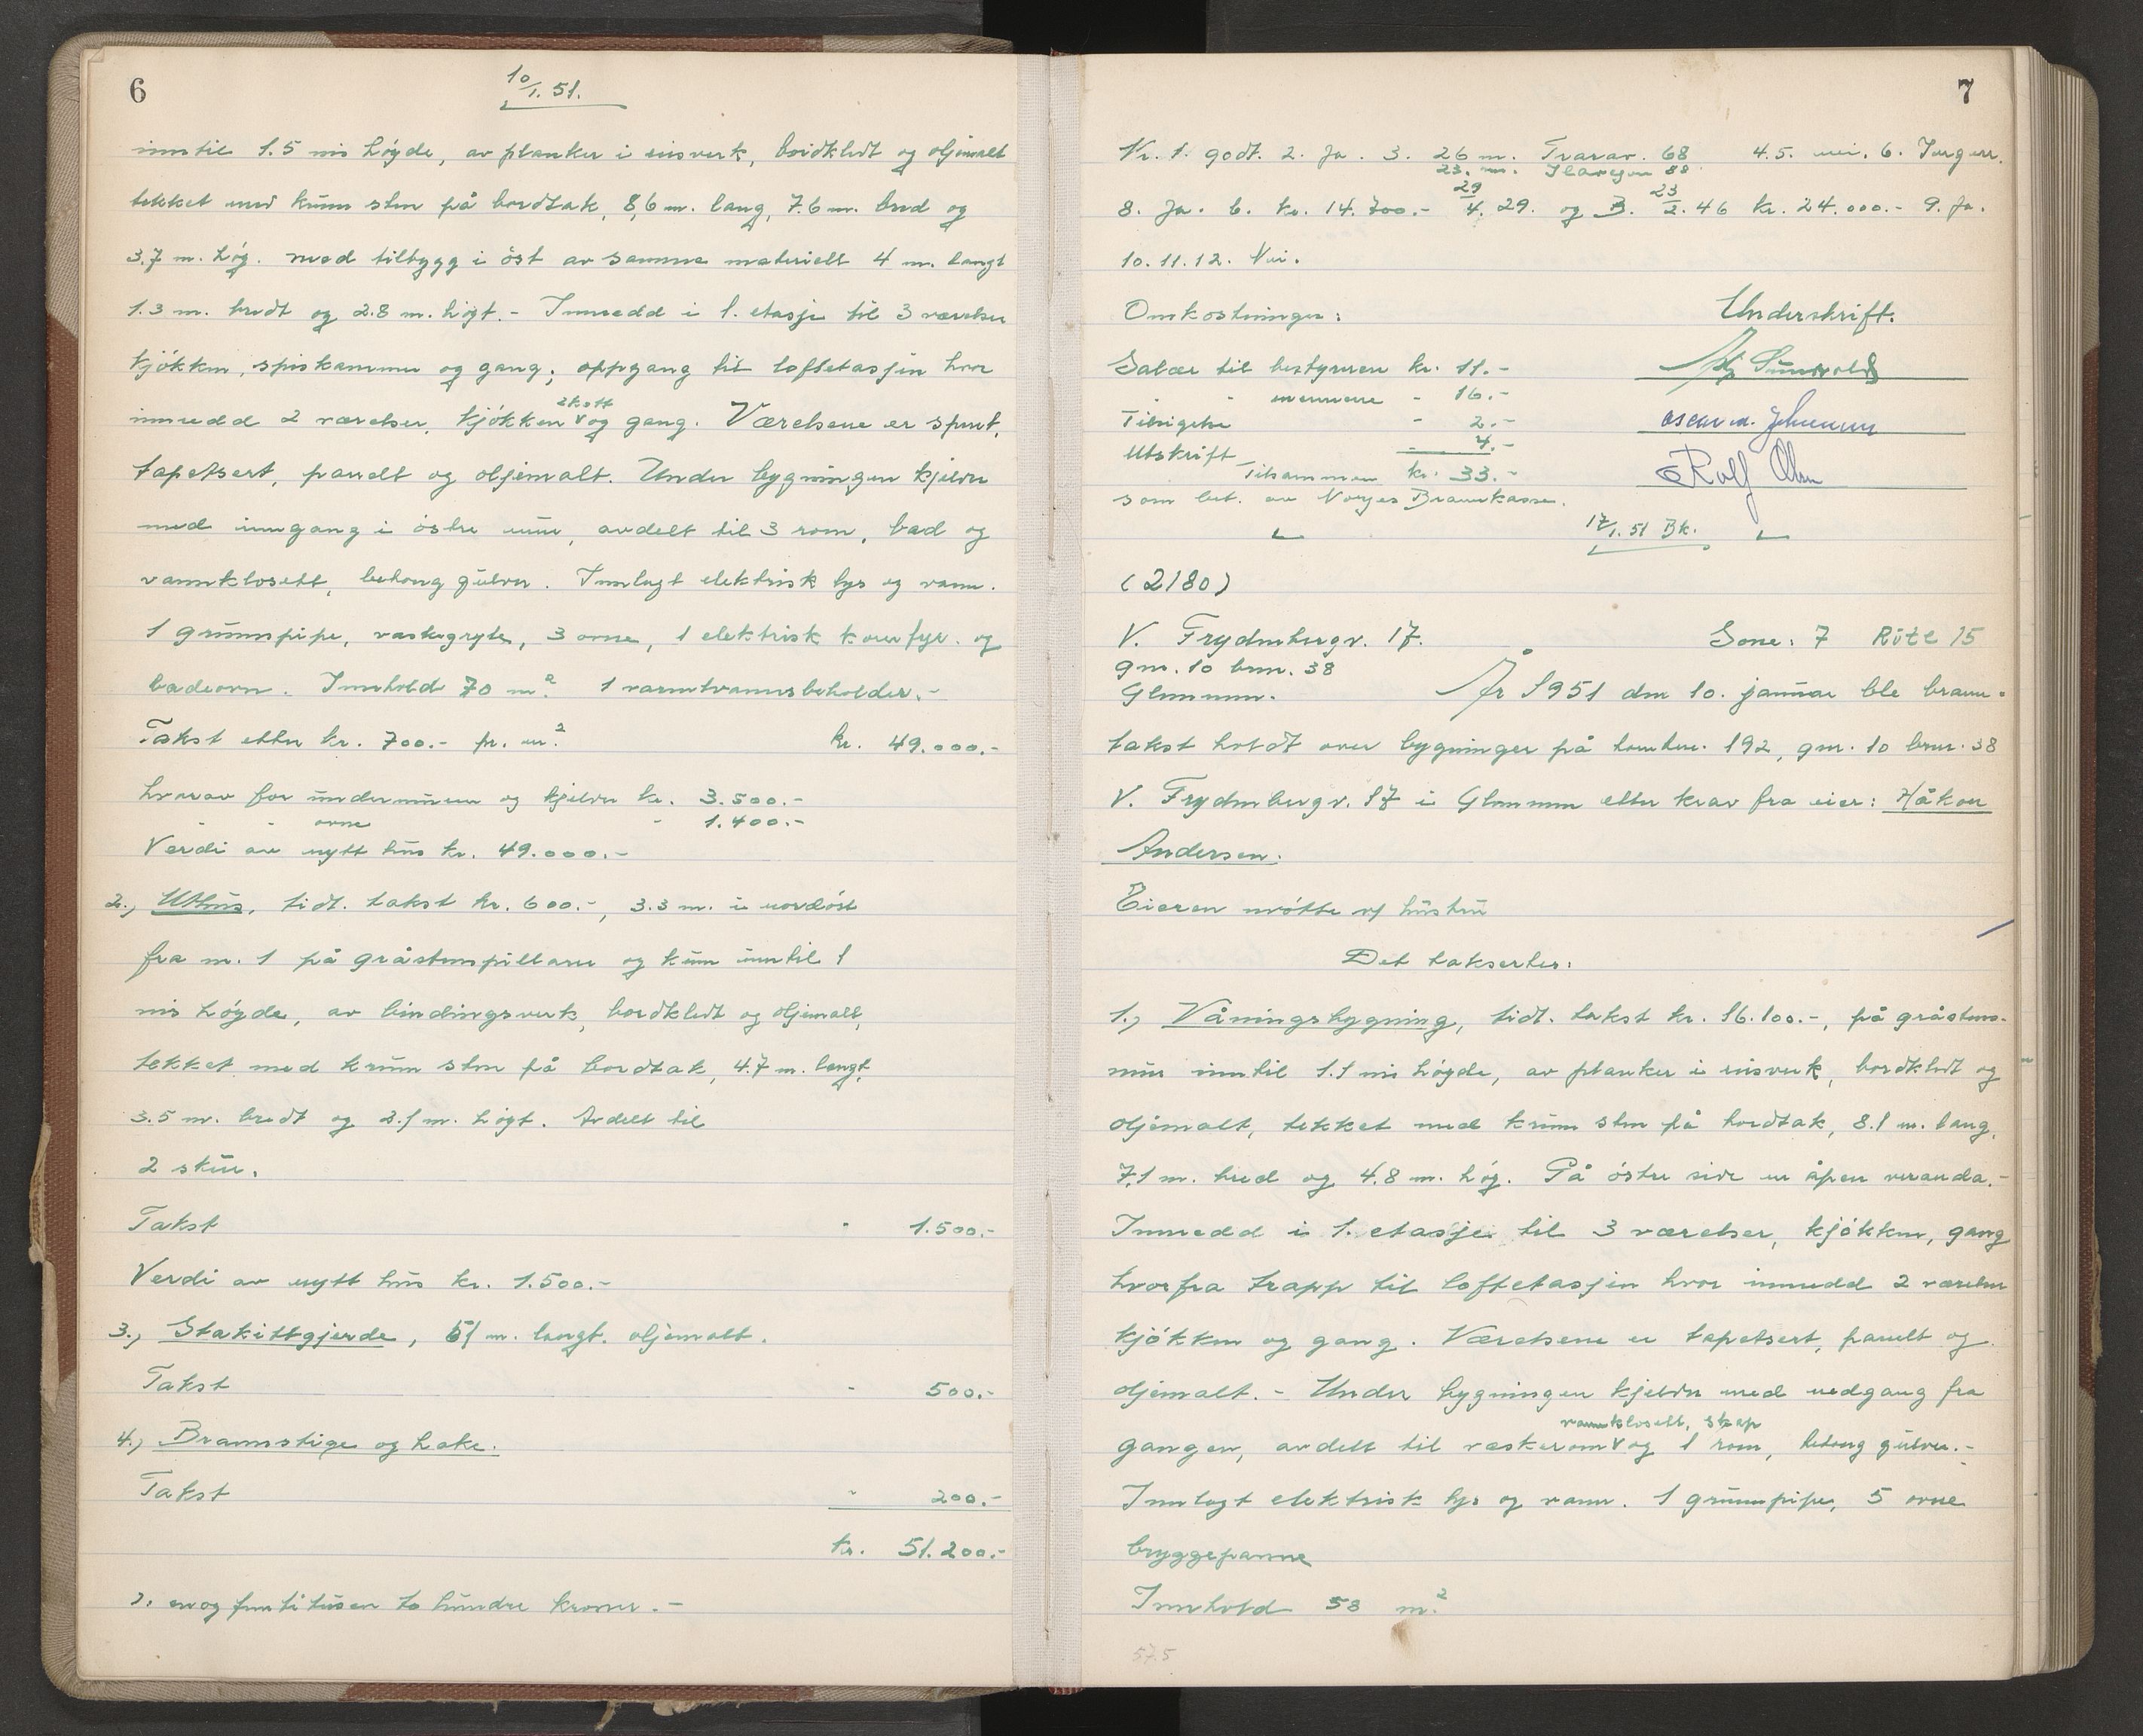 6
10/1. 51.
inntil 1.5 ms høyde, av planker i reisverk, bordkledt og oljemalt
tekket med krum sten på bordtak, 8,6 m. lang, 7.6 m. bred og
3.7 m. høg. med tilbygg i öst av samme materiell 4 m. langt
1.3 m. bredt og 2.8 m. högt. - Innredd i 1. etasje til 3 værelser
kjökken, spiskammer og gang; oppgang til loftetasjen hvor
innredd 2 værelser, kjökken og gang. Værelsene er spent,
2 kott
tapetsert, panelt og oljemalt. Under bygningen kjeller
med inngang i östre mur, avdelt til 3 rom, bad og
vannklosett, betong gulver. Innlagt elektrisk lys og vann.
1 grunnpipe, vaskegryte, 3 ovne, 1 elektrisk komfyr. og
badeovn. Innhold 70 m². 1 varmtvannsbeholder.-
Takst etter kr. 700.- pr. m.² kr. 49.000.-
hvorav for undermuren og kjeller kr. 3.500.-
" " ovne " 1.400.-
Verdi av nytt hus kr. 49.000.-
2., Uthus, tidl. takst kr. 600.-, 3.3 m. i nordöst
fra nr. 1 på gråstenspillarer og krum inntil 1
ms höyde, av bindingsverk, bordkledt og oljemalt,
tekket med krum sten på bordtak, 4.7 m. langt,
3.5 m. bredt og 2.1 m. högt. Avdelt til
2 skur.
Takst " 1.500.-
Verdi av nytt hus kr. 1.500.-
3., Stakittgjerde, 51 m. langt. oljemalt.
Takst " 500.-
4., Brannstige og hake.
Takst " 200.-
kr. 51.200.-
enogfemtitusen to hundre kroner.-
7
Nr. 1. godt. 2. Ja. 3. 26 m. 68 4.5. nei. 6. Ingen.
23. m. 88
8. Ja. b. kr. 14.700.- 29/4. 29. og B. 23/2. 46 kr. 24.000.- 9. Ja.
10. 11. 12. Nei.
Omkostninger: Underskrift.
Salær til bestyreren kr. 11.-
" " mennene " 16.-
Tilsigelse " 2.-
Utskrift " 4.-
Tilsammen kr. 33.-
som bet. av Norges Brannkasse.
Rolf Olsen
17/1. 51 Bk.
(2180)
V. Frydenbergv. 17. Sone: 7 Rute 15
gnr. 10 bnr. 38
Glemmen. År 1951 den 10. januar ble brann-
takst holdt over bygninger på 192, gnr. 10 bnr. 38
V. Frydenbergv. 17 i Glemmen etter krav fra eier: Håkon
Andersen.
Eieren mötte v/ hustru
Det taksertes:
1., Våningsbygning, tidl. takst kr. 16.100.-, på gråstens-
mur inntil 1.1 ms höyde, av planker i reisverk, bordkledt og
oljemalt, tekket med krum sten på bordtak, 8.1 m. lang,
7.1 m. bred og 4.8 m. hög. På östre side er åpen veranda.-
Innredd i 1. etasje til 3 værelser, kjökken, gang
hvorfra trapp til loftetasjen hvor innredd 2 værelser
kjökken og gang. Værelsene er tapetsert, panelt og
oljemalt. - Under bygningen kjeller med nedgang fra
vannklosett, skap
gangen, avdelt til vaskerom og 1 rom, betong gulver.-
Innlagt elektrisk lys og vann. 1 grunnpipe, 5 ovne
bryggepanne
Innhold 58 m.²
57.5